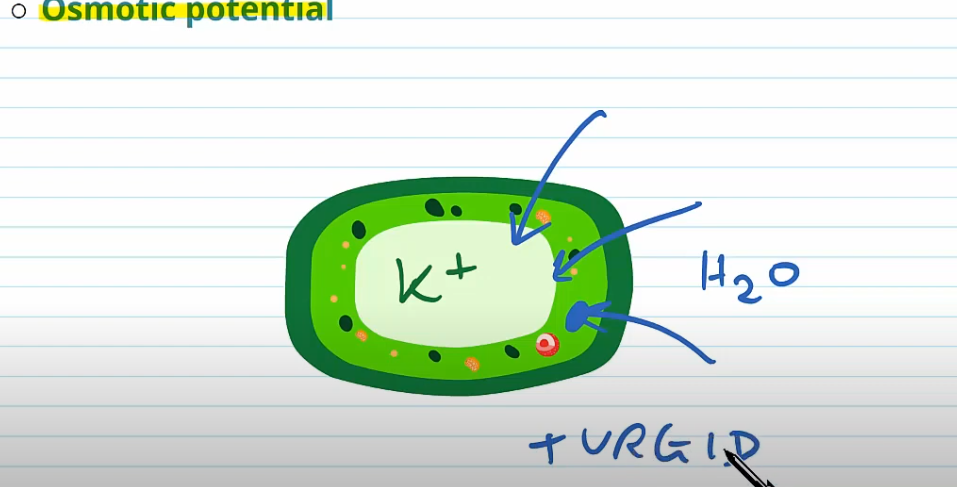 Osmotic potential
K+
H2O
TURGID